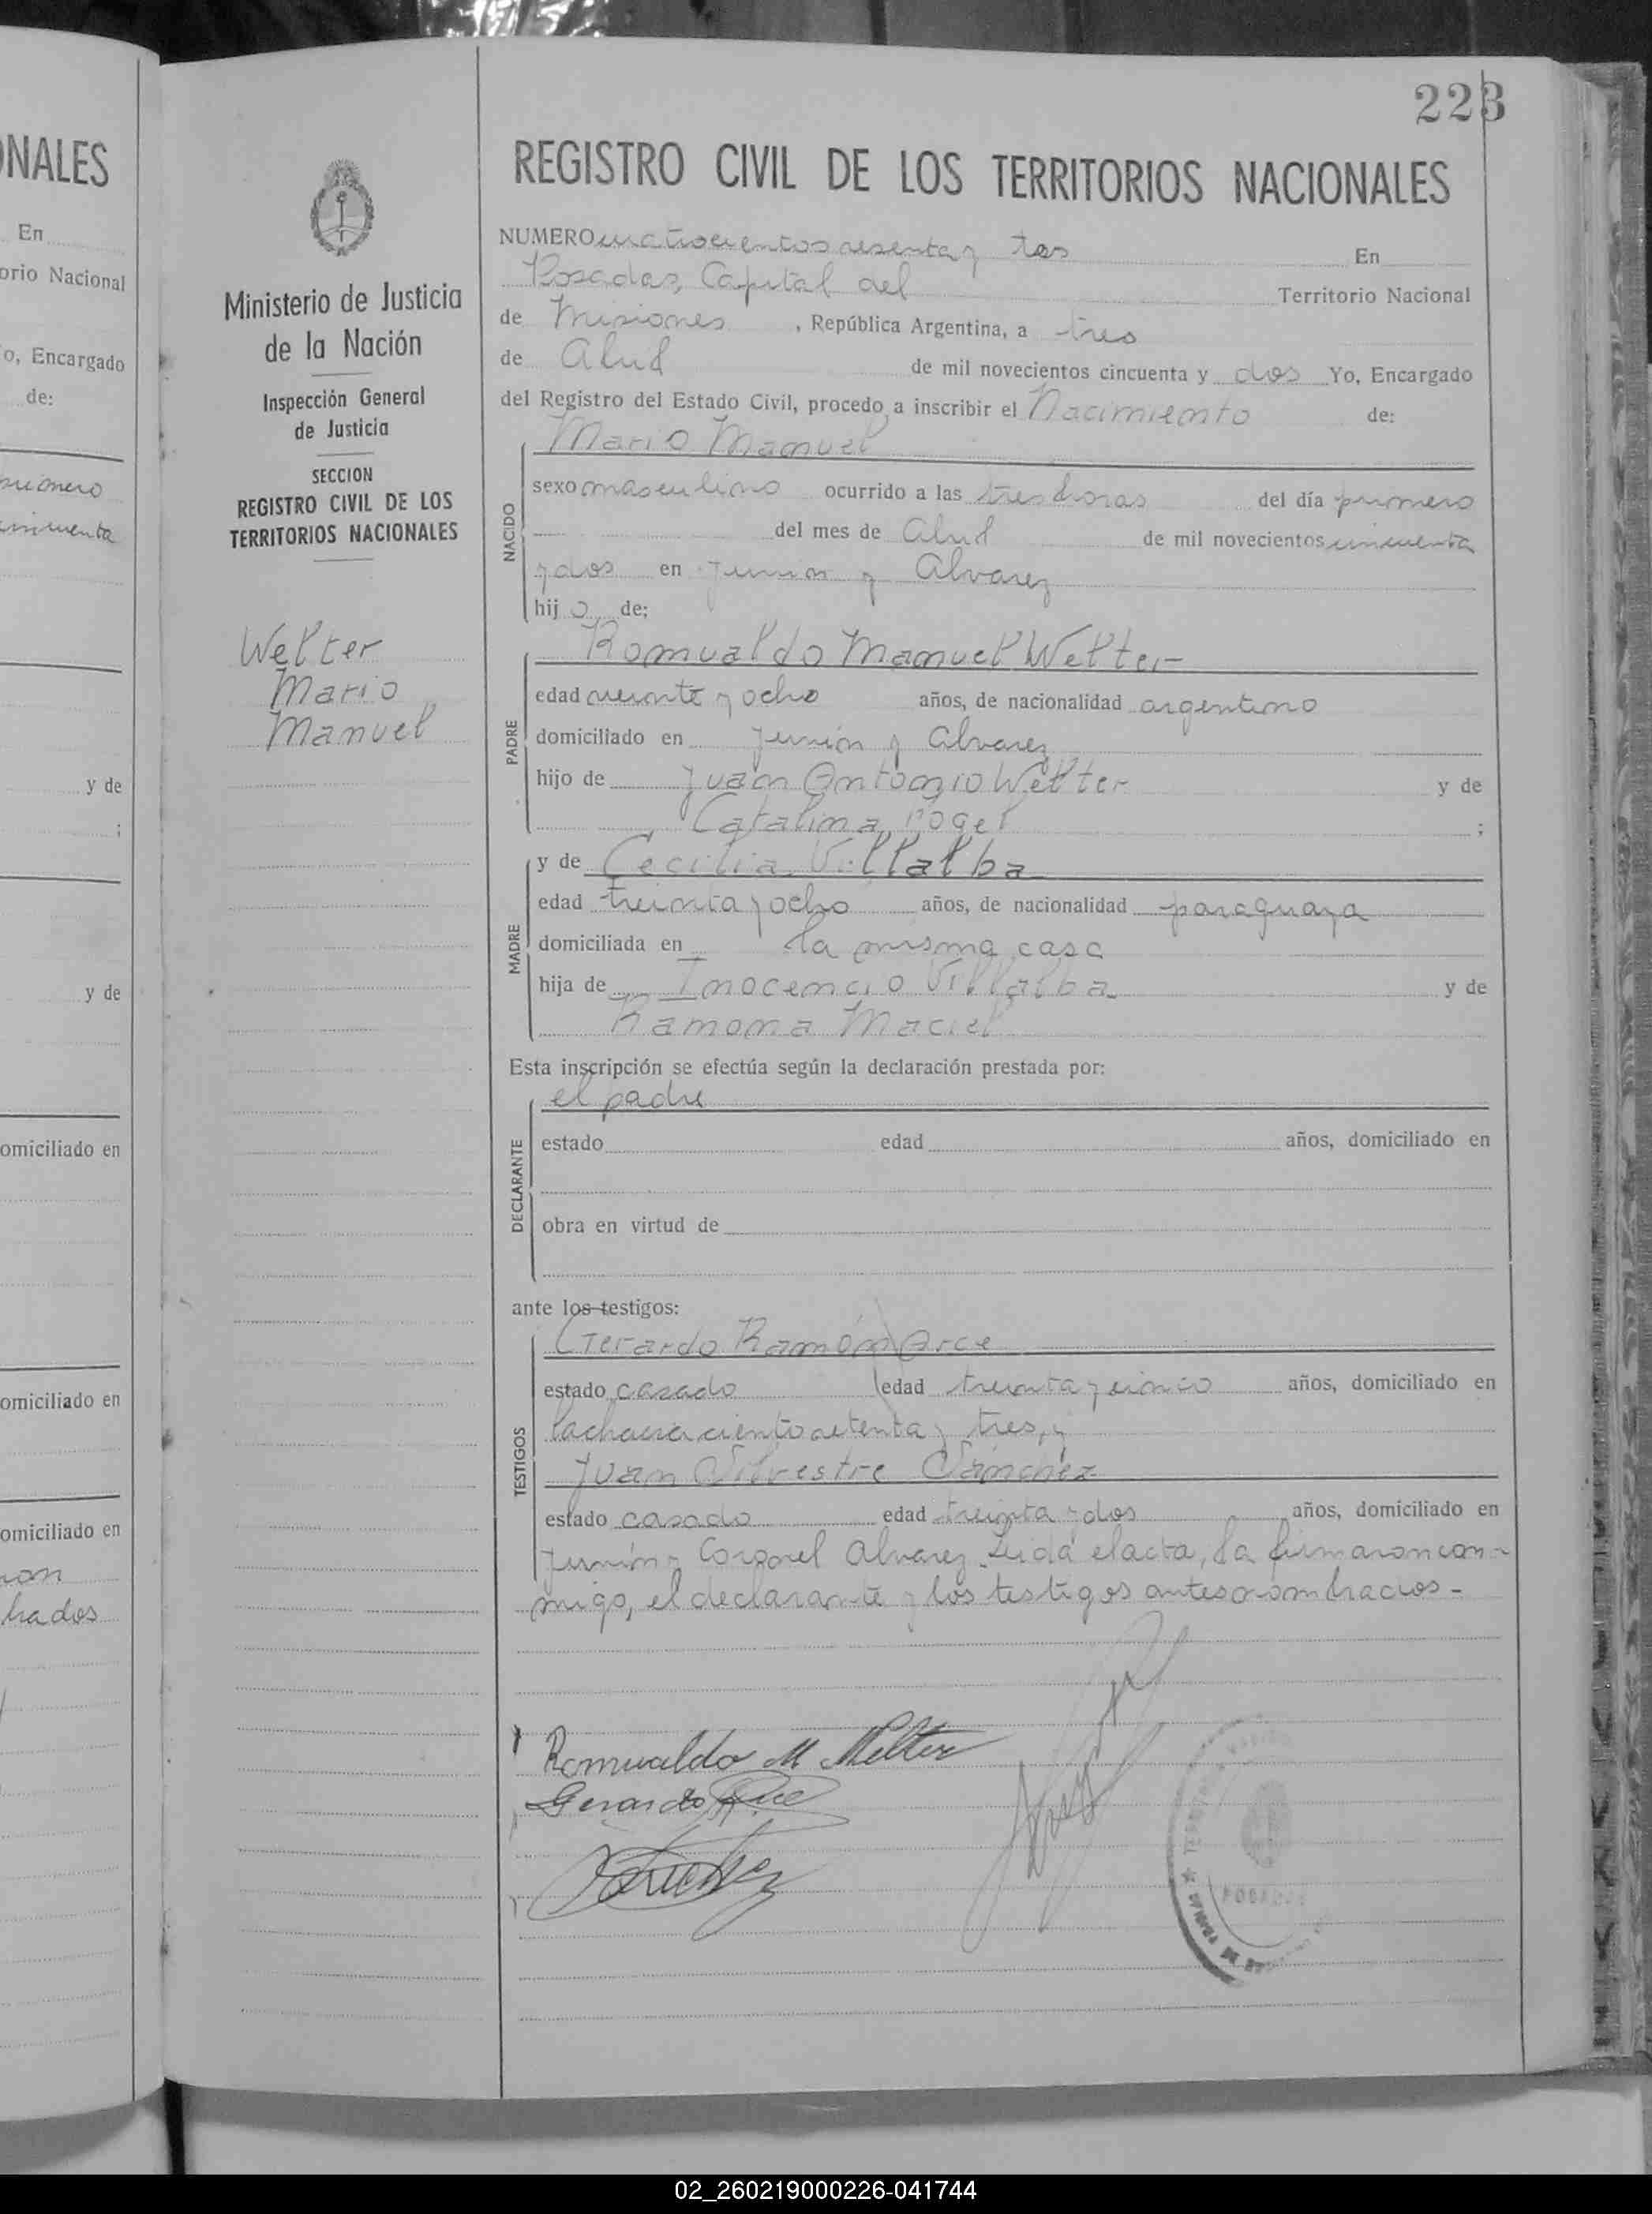 223
NALES
En
orio Nacional
o, Encargado
de:
cincuenta
y de
;
y de
omiciliado en
omiciliado en
omiciliado en
Ministerio de Justicia
de la Nación
Inspección General
de Justicia
SECCION
REGISTRO CIVIL DE LOS
TERRITORIOS NACIONALES
Welter
Mario
Manuel
REGISTRO CIVIL DE LOS TERRITORIOS NACIONALES
NUMERO cuatrocientos sesenta y tres En
Posadas, Capital del Territorio Nacional
de Misiones, República Argentina, a tres
de Abril de mil novecientos cincuenta y dos Yo, Encargado
del Registro del Estado Civil, procedo a inscribir el Nacimiento de:
NACIDO
Mario Manuel
sexo masculino ocurrido a las tres horas del día primero
del mes de Abril de mil novecientos cincuenta
y dos en Junín y Alvarez
hijo de;
PADRE
Romualdo Manuel Welter
edad veinte y ocho años, de nacionalidad argentino
domiciliado en Junín y Alvarez
hijo de Juan Antonio Welter y de
Catalina ;
MADRE
y de Cecilia Villalba
edad treinta y ocho años, de nacionalidad paraguaya
domiciliada en la misma casa
hija de Inocencio Villalba y de
Ramona Maciel
Esta inscripción se efectúa según la declaración prestada por:
DECLARANTE
el padre
estado edad años, domiciliado en
obra en virtud de
ante los testigos:
TESTIGOS
Gerardo Ramón Arce
estado casado edad treinta y cinco años, domiciliado en
la chacra ciento setenta y tres, y
Juan Silvestre Sánchez
estado casado edad treinta y dos años, domiciliado en
Junín y Coronel Alvarez. Leída el acta, la firmaron con-
migo, el declarante y los testigos antes nombrados-
Romualdo M Welter
Gerardo Arce
Sánchez
02_260219000226-041744